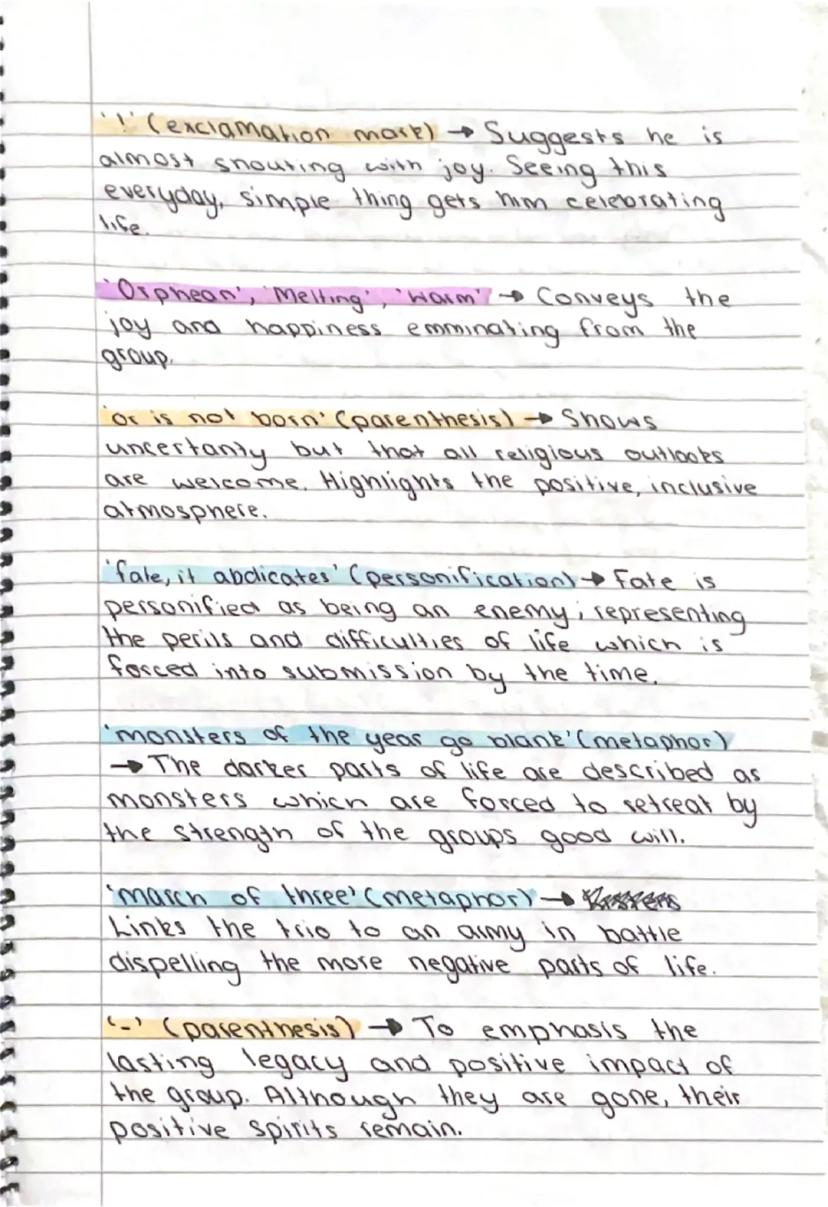 '!' (exclamation mark) → Suggests he is
almost shouting with joy. Seeing this
everyday, simple thing gets him celebrating
life.
'Orphean', 'Melting', 'Warm' → Conveys the
joy and happiness emminating from the
group.
'or is not born' (parenthesis) → Shows
uncertanty but that all religious outlooks
are welcome. Highlights the positive, inclusive
atmosphere.
'fate, it abdicates' (personification) → Fate is
personified as being an enemy; representing
the perils and difficulties of life which is
forced into submission by the time.
'monsters of the year go blank' (metaphor)
→ The darker parts of life are described as
monsters which are forced to retreat by
the strength of the groups good will.
'march of three' (metaphor) →
Links the trio to an army in battle
dispelling the more negative parts of life.
'-' (parenthesis) → To emphasis the
lasting legacy and positive impact of
the group. Although they are gone, their
positive spirits remain.